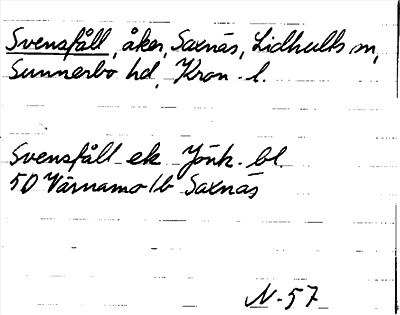 Svensfåll, åker, Saxnäs, Lidhults sn,
Sunnerbo hd, Kron. l.
Svensfåll ek Jönk. bl.
5D Värnamo 1b Saxnäs
N-57